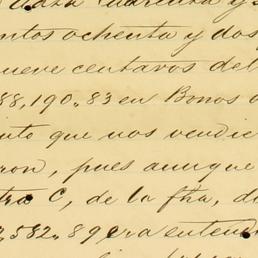 cuarenta y
ntos ochenta y dos
ueve centavos del
88,190.83 en Bonos
que nos vendie
ron, pues aunque
tra C, de la fha, d
,582.89 era entend